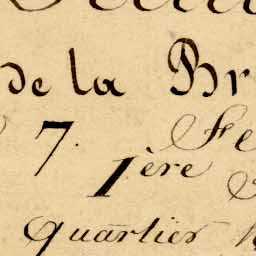 de la Br
7. Fe
1ère
quartier